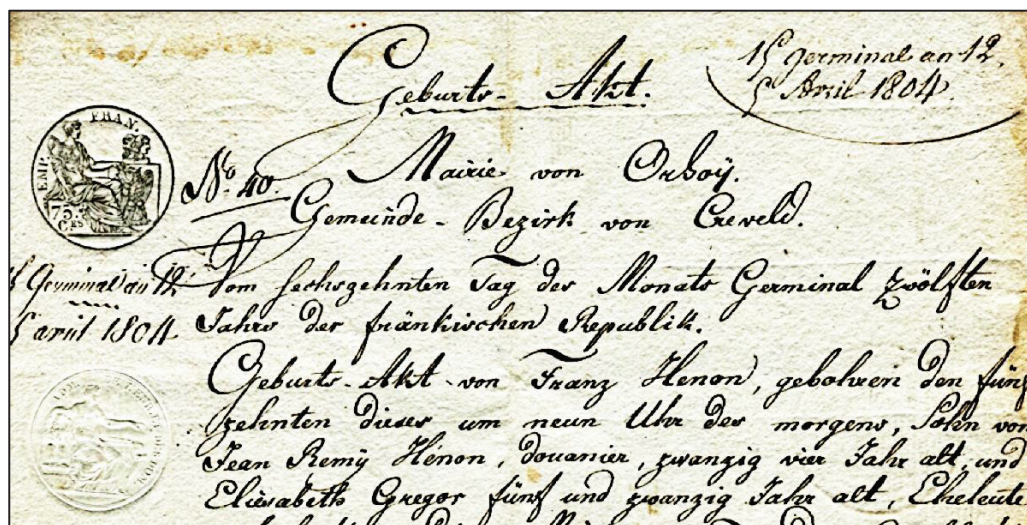 15 Germinal an 12.
5 Avril 1804.
Geburts-Akt.
EMP. FRAN.
75.
No. 40.
Mairie von Orsoÿ.
Gemeinde-Bezirk von Creveld.
Germinal an 12
5 avril 1804
Vom sechszehnten Tag des Monats Germinal zwölften
Jahrs der fränkischen Republik.
Geburts-Akt von Franz Henon, gebohren den fünf
zehnten dieses um neun Uhr des morgens, Sohn von
Jean Remÿ Hénon, douanier, zwanzig vier Jahr alt, und
Eliesabeth Gregor fünf und zwanzig Jahr alt, Eheleute